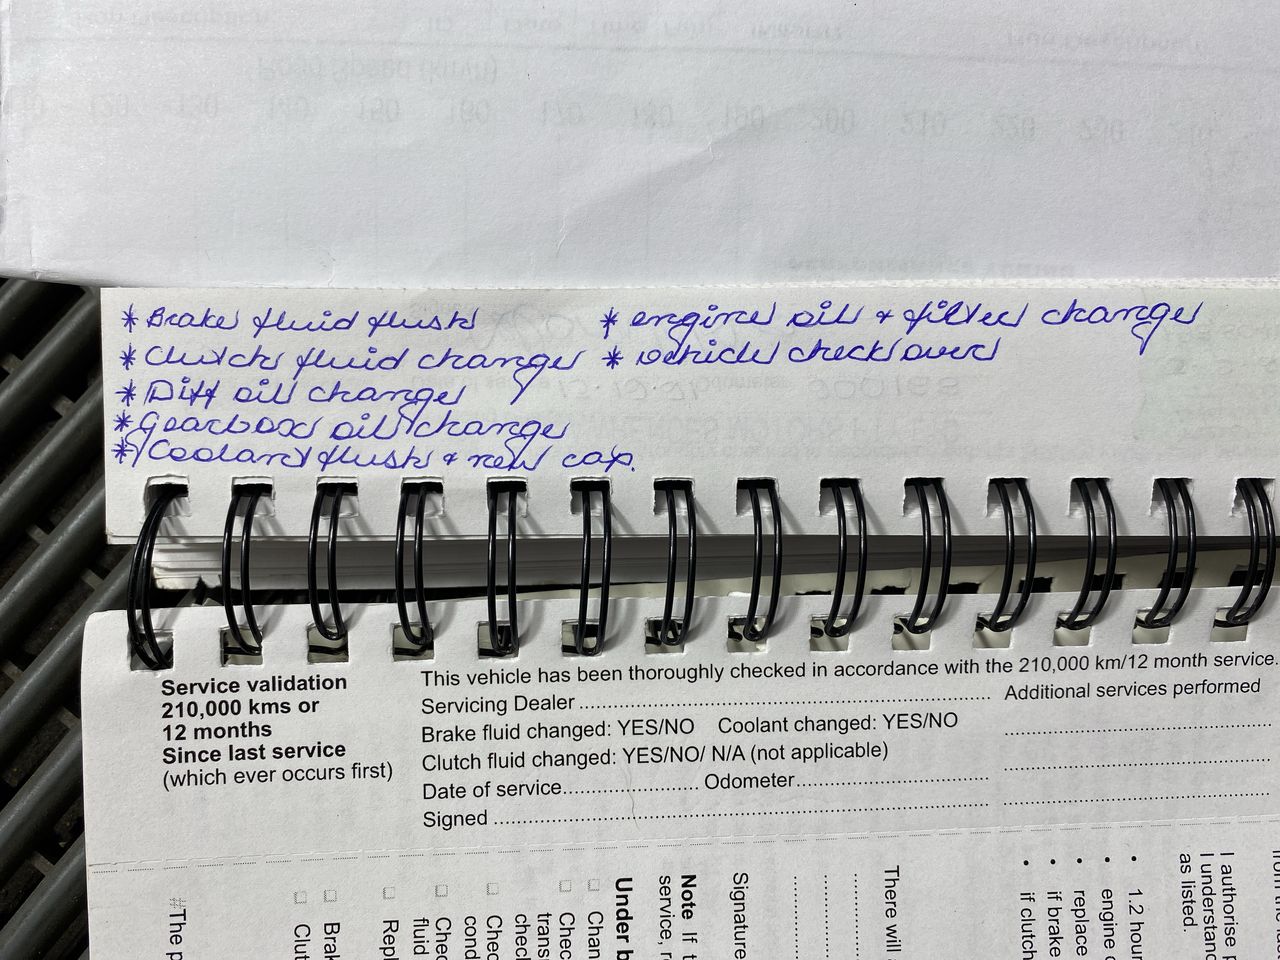 * Brake fluid flush
* Clutch fluid change
* Diff oil change
* Gearbox oil change
* Coolant flush & new cap.
* engine oil & filter change
* vehicle check over
Service validation
210,000 kms or
12 months
Since last service
(which ever occurs first)
This vehicle has been thoroughly checked in accordance with the 210,000 km/12 month service.
Servicing Dealer
Additional services performed
Brake fluid changed: YES/NO Coolant changed: YES/NO
Clutch fluid changed: YES/NO/ N/A (not applicable)
Date of service Odometer
Signed
I authorise
I understand
as listed.
• 1.2 hour
• engine
• replace
• if brake
• if clutch
There will
Signature
Note If
service,
Under
□ Chan
□ Chec
trans
check
□ Chec
cond
□ Chec
fluid
□ Repl
□ Brak
□ Clut
#The